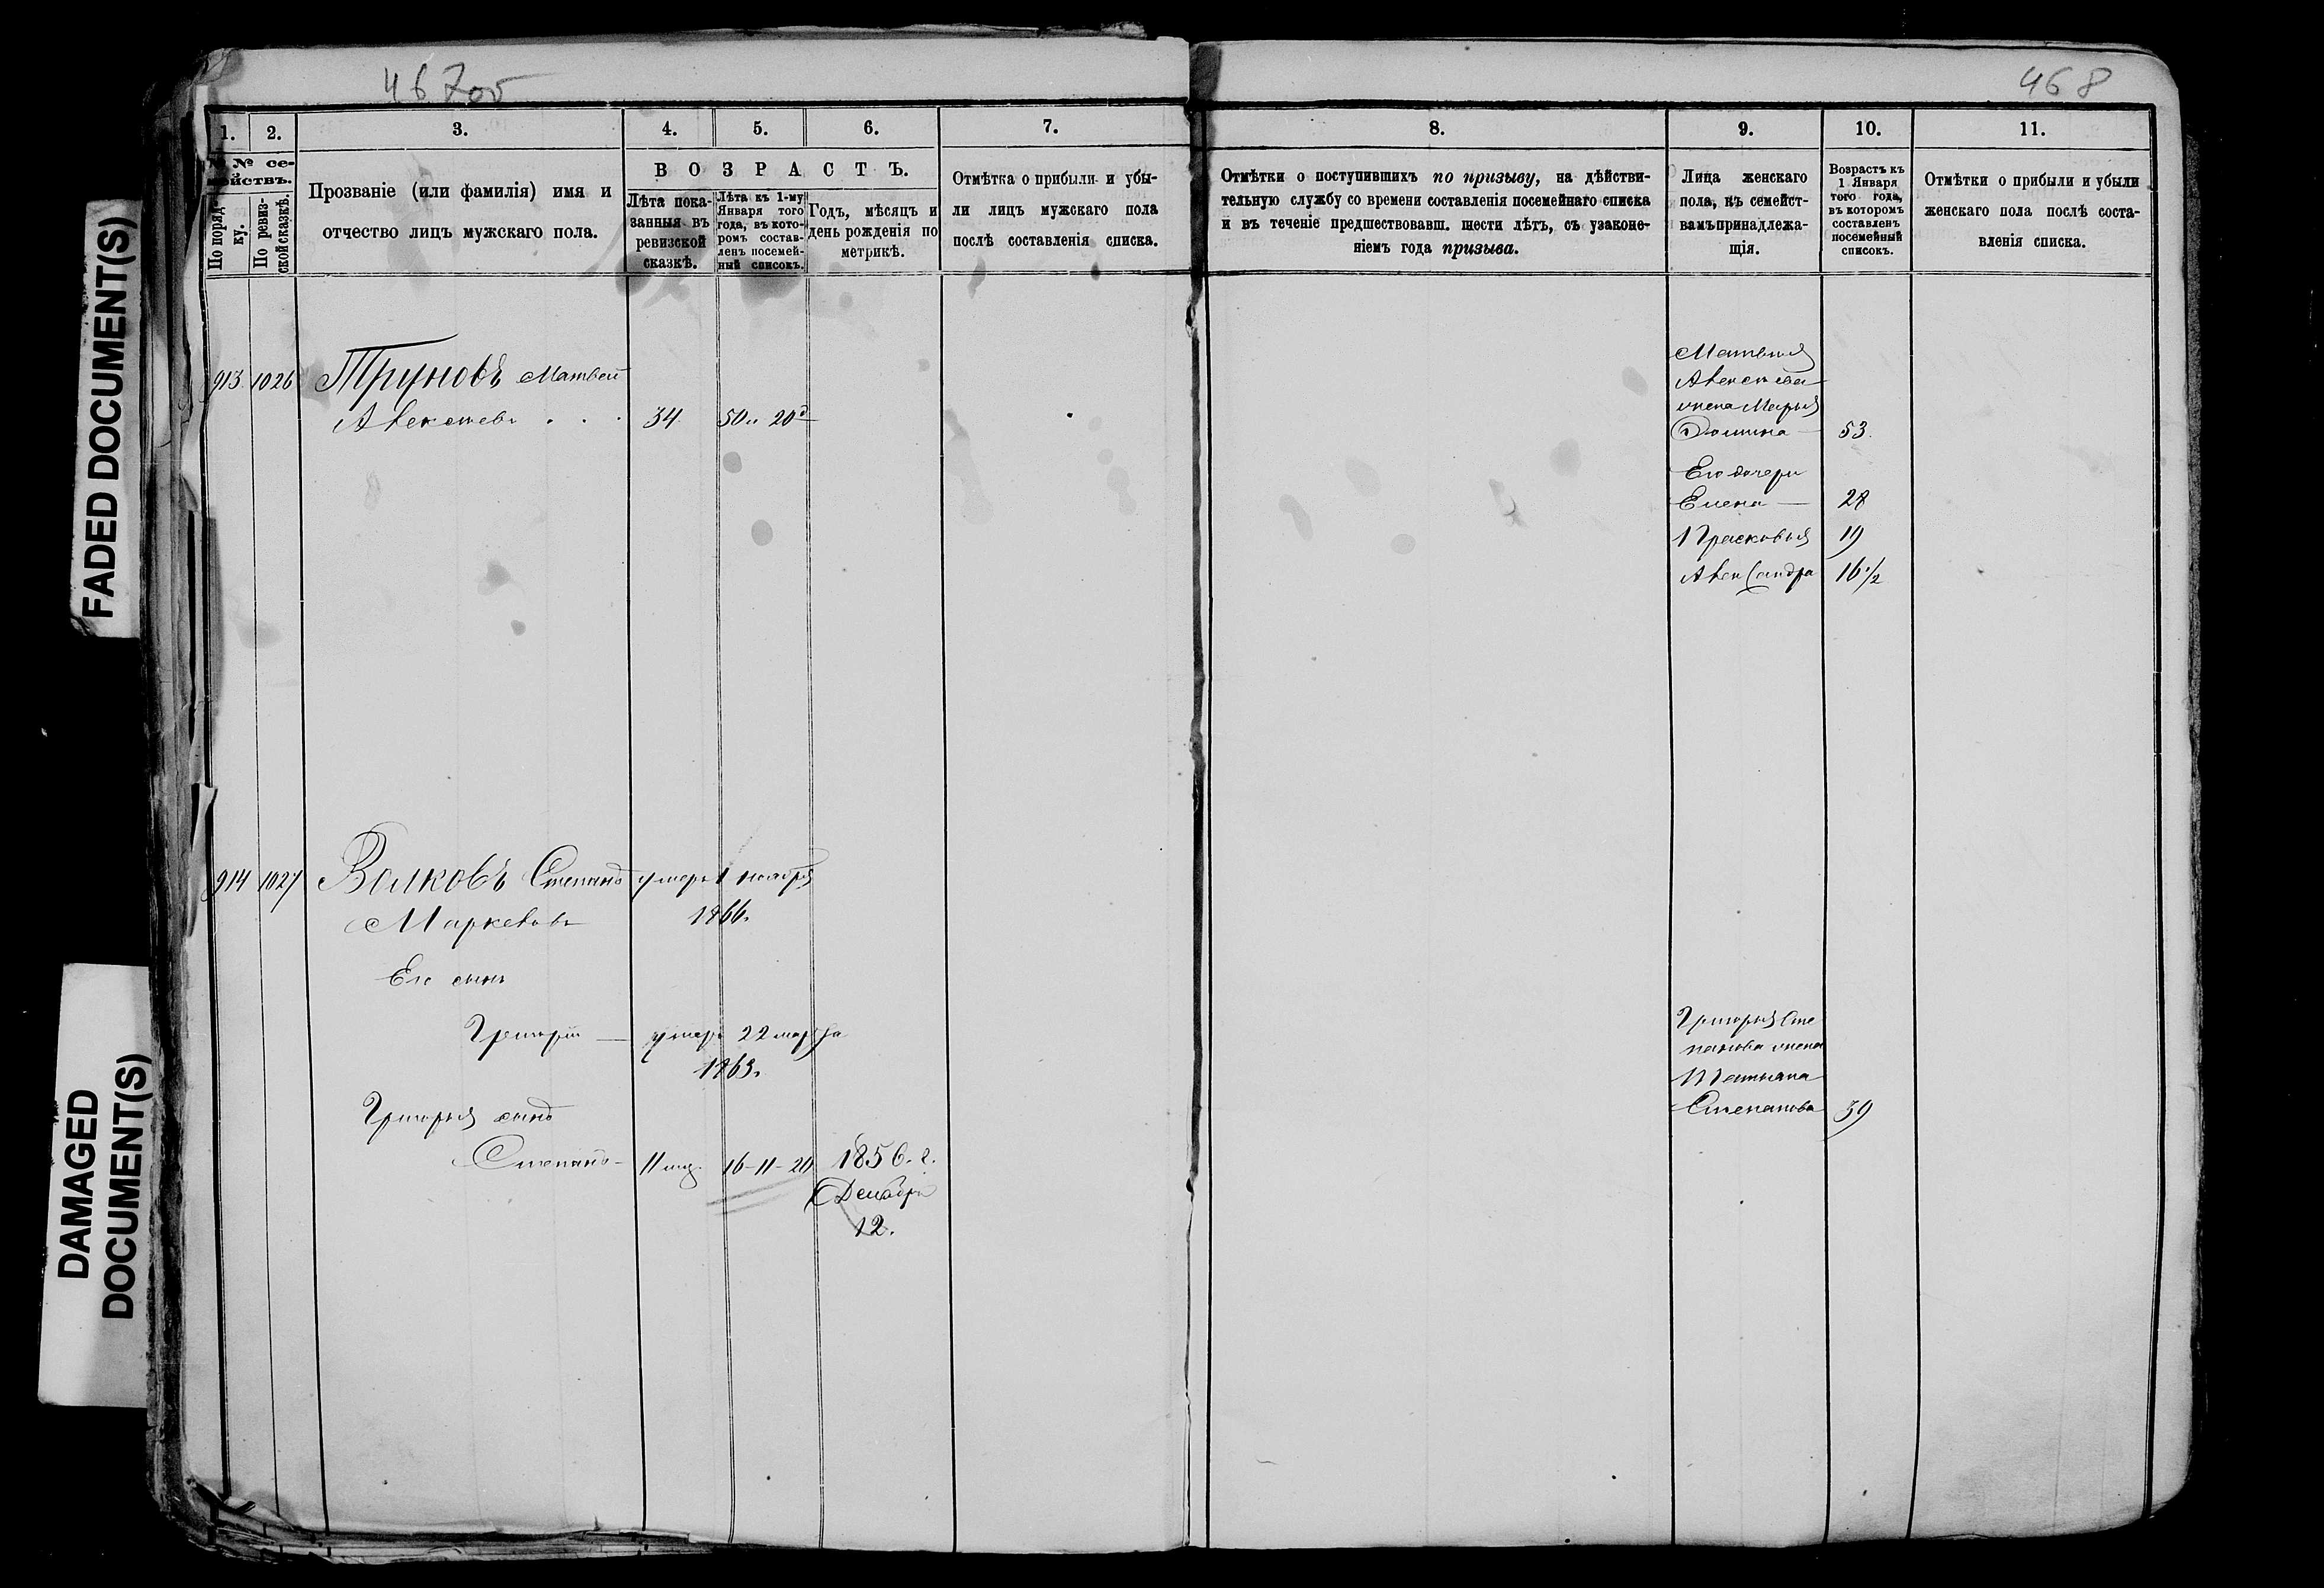 467об
468
FADED DOCUMENT(S)
DAMAGED
DOCUMENT(S)
1.
2.
3.
4.
5.
6.
7.
8.
9.
10.
11.
№ № се-
мействъ.
По поряд-
ку.
По ревиз-
ской сказкѣ.
Прозваніе (или фамилія) имя и
отчество лицъ мужскаго пола.
ВОЗРАСТЪ.
Лѣта пока-
занныя въ
ревизской
сказкѣ.
Лѣта къ 1-му
Января того
года, въ кото-
ромъ состав-
ленъ посемей-
ный списокъ.
Годъ, мѣсяцъ и
день рожденія по
метрикѣ.
Отмѣтка о прибыли и убы-
ли лицъ мужскаго пола
послѣ составленія списка.
Отмѣтки о поступившихъ по призыву, на дѣйстви-
тельную службу со времени составленія посемейнаго списка
и въ теченіе предшествовавш. шести лѣтъ, съ узаконе-
ніемъ года призыва.
Лица женскаго
пола, къ семейст-
вамъ принадлежа-
щія.
Возрастъ къ
1 Января
того года,
въ которомъ
составленъ
посемейный
списокъ.
Отмѣтки о прибыли и убыли
женскаго пола послѣ соста-
вленія списка.
913 1026 Труновъ Матвей
Алексеевъ . . . 34 50 " 20д
Матвея
Алексеева
жена Марья
Фомина 53.
Его дочери
Елена — 28
Прасковья 19
Александра 16 1/2
914 1027 Волковъ Степанъ умеръ 1 ноября
Маркеловъ 1866.
Его сынъ
Григорій — умеръ 22 марта
1863.
Григорья сынъ
Степанъ - 11 мц. 16-11-20 1856. г.
Декабря
12.
Григорья Сте
панова жена
Татьяна
Степанова 39